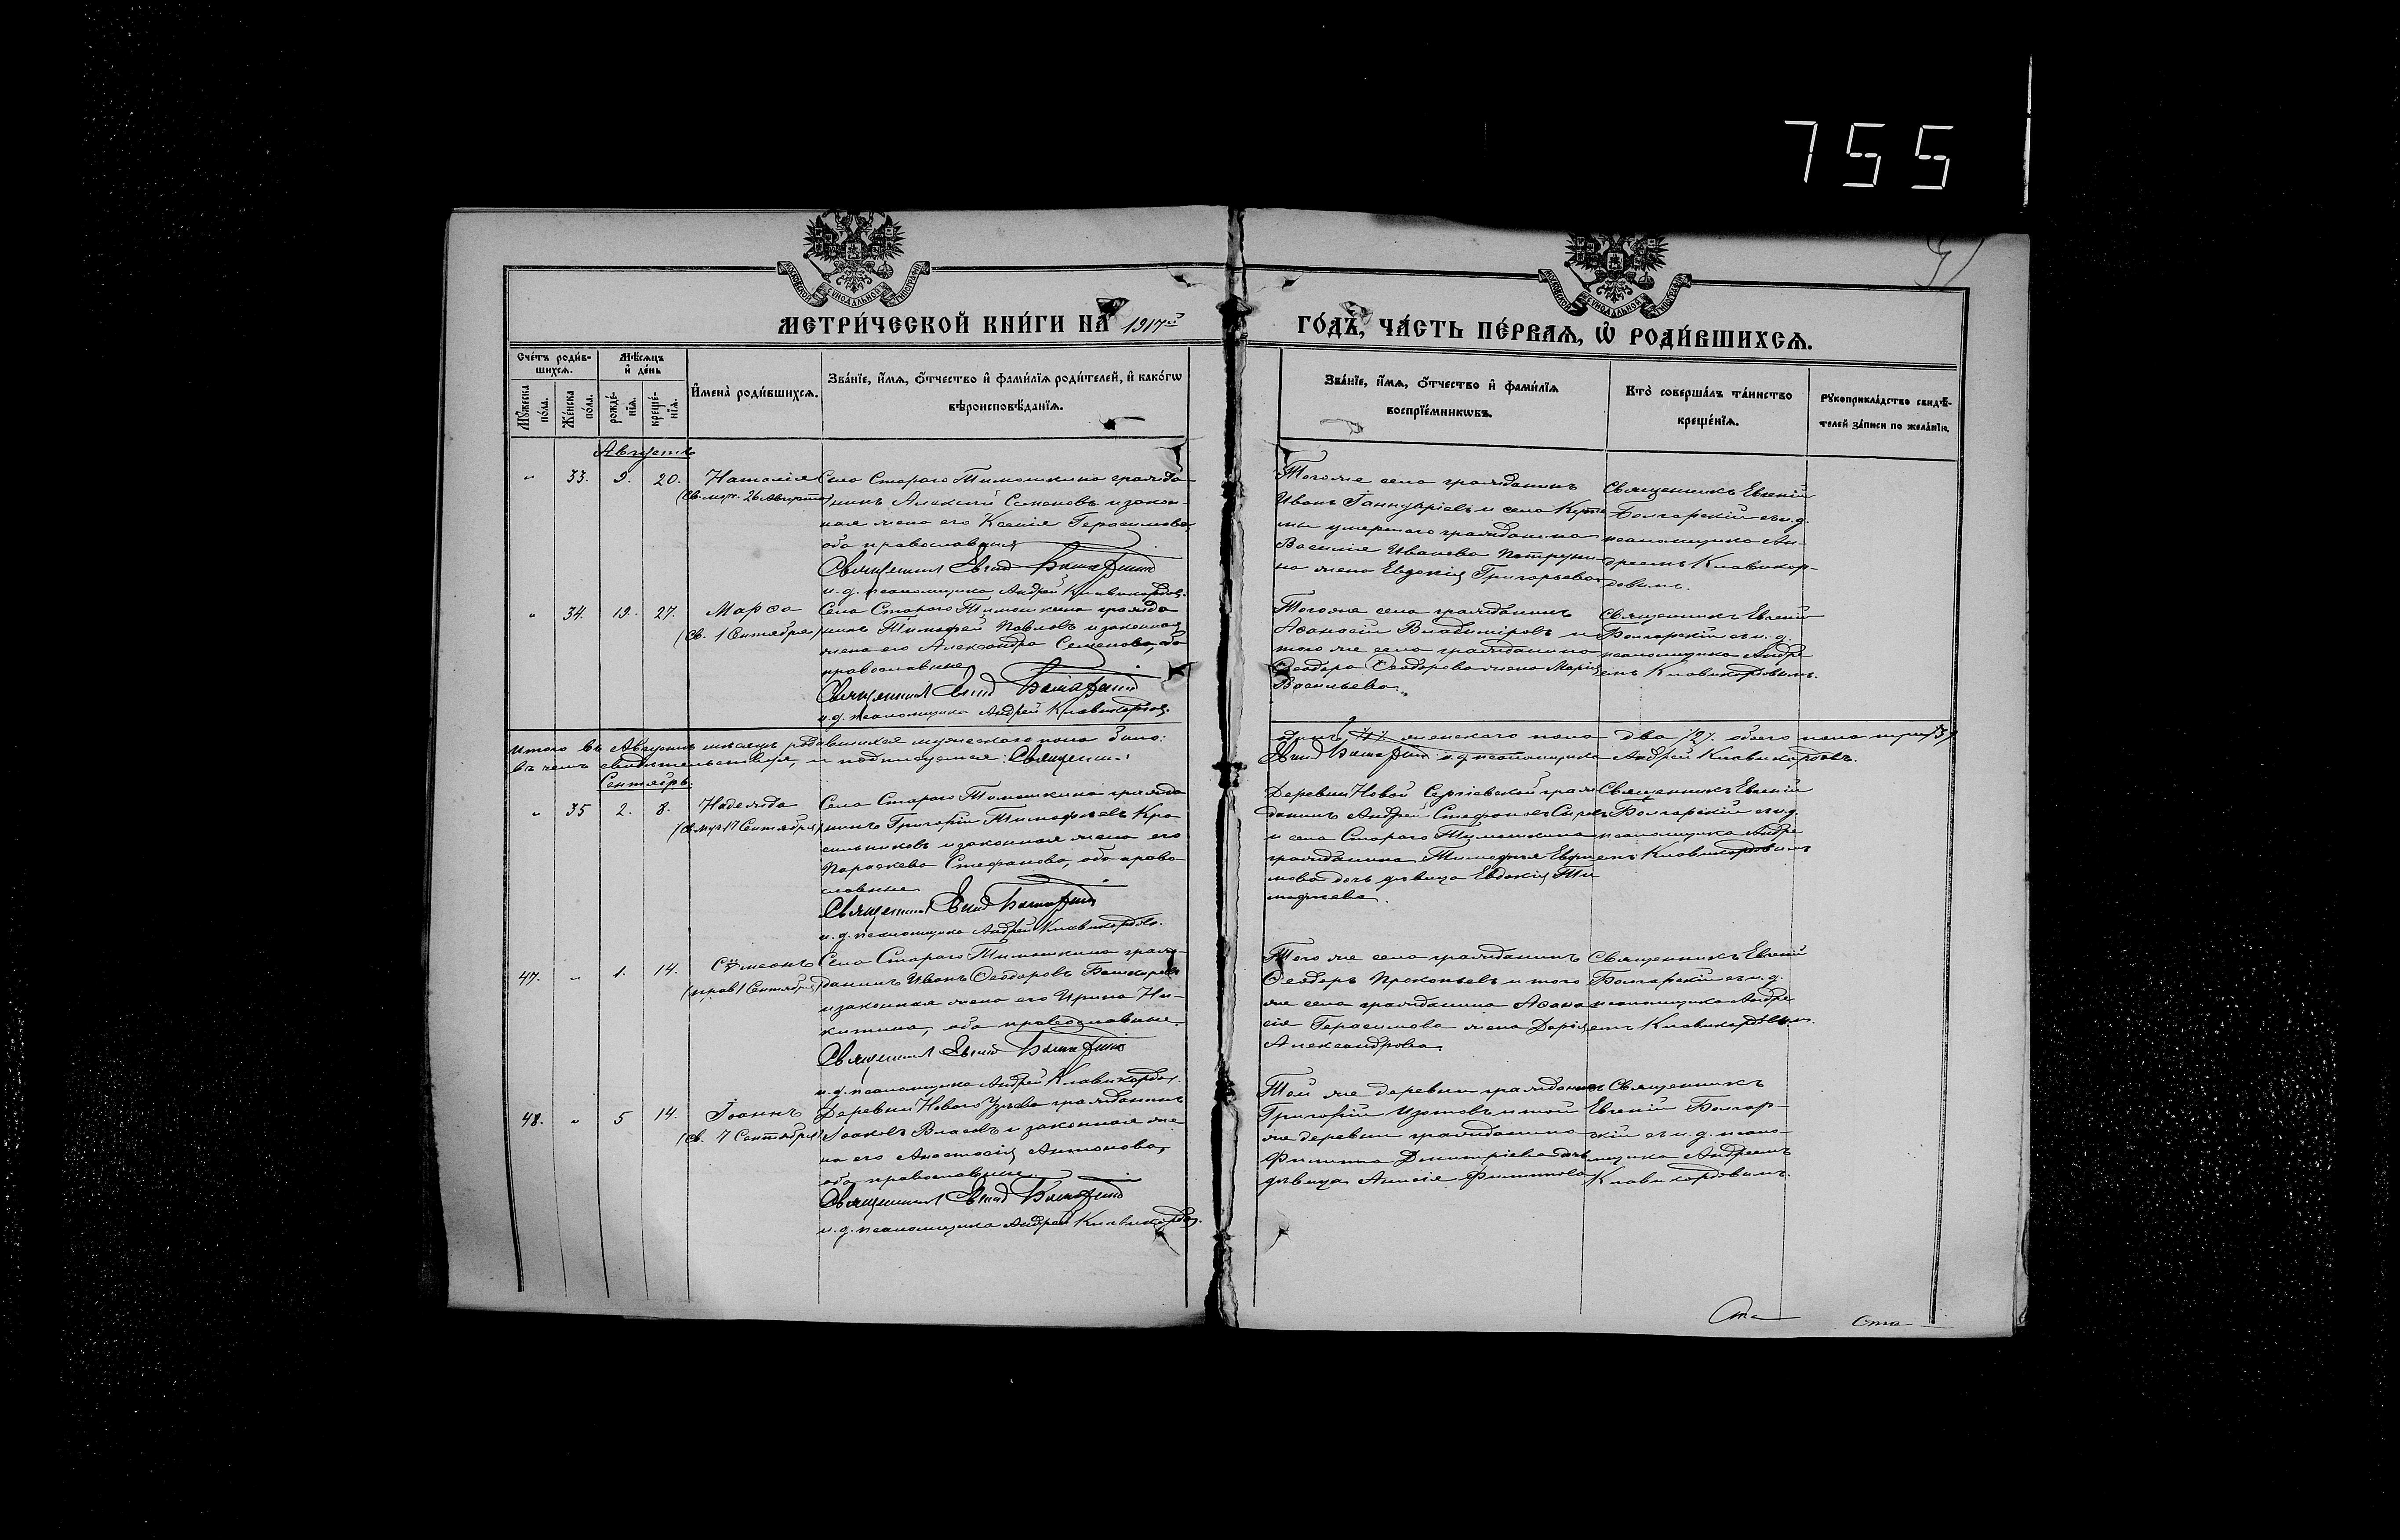 755
МОСКОВСКОЙ СѴНОДАЛЬНОЙ ТИПОГРАФІИ
МОСКОВСКОЙ СѴНОДАЛЬНОЙ ТИПОГРАФІИ
МЕТРИ́ЧЕСКОЙ КНИ́ГИ НА 1917й
ГО́ДЪ, ЧА́СТЬ ПЕ́РВАѦ, Ѡ҆ РОДИ́ВШИХСѦ.
Сче́тъ роди́в-
шихсѧ.
Мѣ́сѧцъ
и҆ де́нь
Мꙋ́жеска
по́ла.
Же́нска
по́ла.
рожде́-
нїѧ.
креще́-
нїѧ.
И҆мена̀ роди́вшихсѧ.
Зва́нїе, и҆́мѧ, ѻ҆́тчество и҆ фами́лїѧ роди́телей, и҆ како́гѡ
вѣроисповѣ́данїѧ.
Зва́нїе, и҆́мѧ, ѻ҆́тчество и҆ фами́лїѧ
воспрїе́мникѡвъ.
Кто̀ соверша́лъ та́инство
креще́нїѧ.
Рꙋкоприкла́дство свидѣ́-
телей за́писи по жела́нїю.
Августъ
" 33. 9. 20. Наталія
(св. муч. 26 Августа)
Села Стараго Тимошкина гражда-
нинъ Алексій Семеновъ и закон-
ная жена его Ксенія Герасимова
оба православныя
Священникъ
и. д. псаломщика Андрей Клавикордовъ.
Тогоже села гражданинъ
Иванъ Іаннуаріевъ и села
умершаго гражданина
Василія Иванова
на жена Евдокія Григорьева
Священникъ Евгеній
Болгарскій съ и. д.
псаломщика Ан-
дреемъ Клавикор-
довымъ.
" 34. 19. 27. Марѳа
(св. 1 Сентября)
Села Стараго Тимошкина гражда
нинъ Тимофей Павловъ и законная
жена его Александра Семенова, оба
православные
Священникъ
и. д. псаломщика Андрей Клавикордовъ.
Тогоже села гражданинъ
Аѳанасій Владиміровъ и
того же села гражданина
Ѳеодора Ѳеодорова жена Марія
Васильева.
Священникъ Евгеній
Болгарскій съ и. д.
псаломщика Андре
емъ Клавикордовымъ.
Итого въ Августѣ мѣсяцѣ родившихся мужескаго пола было:
одинъ /1/. женскаго пола два /2/. обоего пола три /3/
въ чемъ свидѣтельствуя, и подписуемся: Священникъ
и. д. псаломщика Андрей Клавикордовъ.
Сентябрь.
" 35 2. 8. Надежда
(св. муч. 17 Сентября)
Села Стараго Тимошкина гражда
нинъ Григорій Тимофѣевъ Кра
сильниковъ и законная жена его
Параскева Стефанова, оба право-
славные
Священникъ
и. д. псаломщика Андрей Клавикордовъ.
Деревни Новой Сергіевской граж
данинъ Андрей Стефановъ
и села Стараго Тимошкина
гражданина Тимофея Ефи
мова дочь дѣвица Евдокія Ти
мофѣева.
Священникъ Евгеній
Болгарскій съ и. д.
псаломщика Андре
емъ Клавикордовымъ
47. " 1. 14. Сѵмеонъ
(прав. 1 Сентября)
Села Стараго Тимошкина граж-
данинъ Иванъ Ѳеодоровъ
и законная жена его Ирина Ни-
китина, оба православные.
Священникъ
и. д. псаломщика Андрей Клавикордовъ.
Того же села гражданинъ
Ѳеодоръ Прокопьевъ и того
же села гражданина Аѳана
сія Герасимова жена Дарія
Александрова.
Священникъ Евгеній
Болгарскій съ и. д.
псаломщика Андре
емъ Клавикордовымъ.
48. " 5 14. Іоаннъ
(св. 7 Сентября)
Деревни Новаго гражданинъ
Іаковъ Власовъ и законная же
на его Анастасія Антонова,
оба православные
Священникъ
и. д. псаломщика Андрей Клавикордовъ.
Той же деревни гражданинъ
Григорій Изотовъ и той
же деревни гражданина
Филиппа Димитріева дочь
дѣвица Анисія Филиппова
Священникъ
Евгеній Болгар-
скій съ и. д. псало-
мщика Андреемъ
Клавикордовымъ.